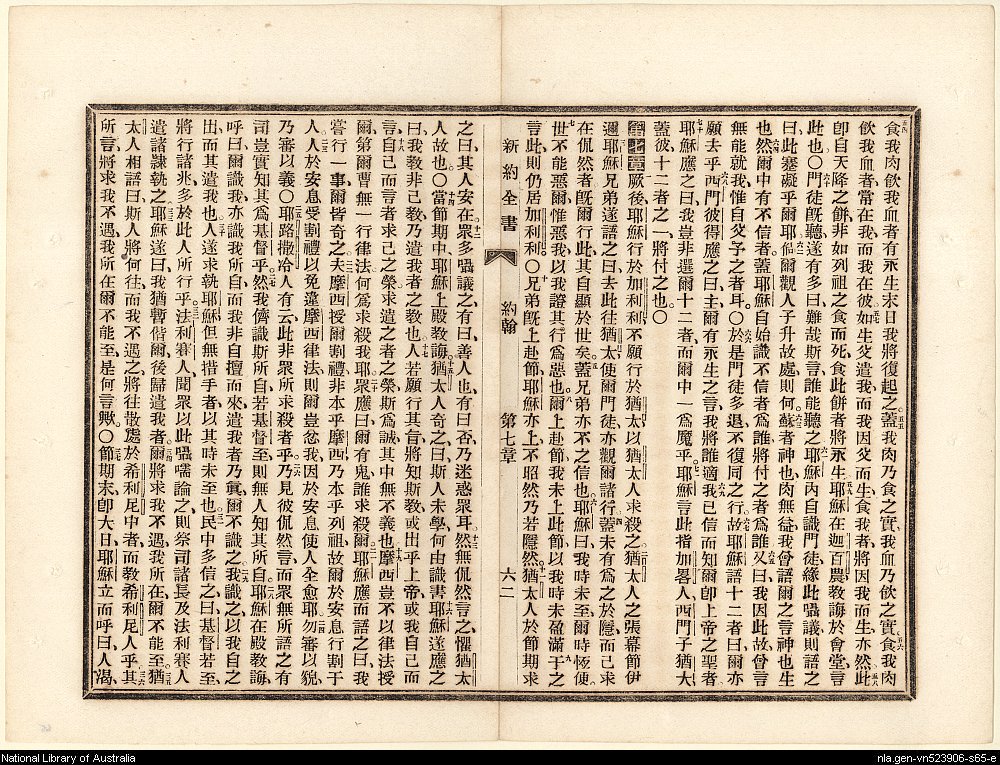 食我肉飲我血者有永生末日我將復起之蓋我肉乃食之實我血乃飲之實食我肉
飲我血者常在我而我在彼如生父遣我而我因父而生食我者將因我而生亦然此
卽自天降之餅非如列祖之食而死食此餅者將永生耶穌在迦百農教誨於會堂言
此也〇門徒旣聽遂有多曰難哉斯言誰能聽之耶穌內自識門徒緣此囁議則語之
曰此塞礙乎爾耶倘爾觀人子升故處則何蘇者神也肉無益我曾語爾之言神也生
也然爾中有不信者蓋耶穌自始識不信者爲誰將付之者爲誰又曰我因此故曾言
無能就我惟自父予之者耳〇於是門徒多退不復同之行故耶穌語十二者曰爾亦
願去乎西門彼得應之曰主爾有永生之言我將誰適我已信而知爾卽上帝之聖者
耶穌應之曰我豈非選爾十二者而爾中一爲魔乎耶穌言此指加畧人西門子猶大
蓋彼十二者之一將付之也〇
第七章厥後耶穌行於加利利不願行於猶太以猶太人求殺之猶太人之張幕節伊
邇耶穌兄弟遂語之曰去此往猶太使爾門徒亦觀爾諸行蓋未有爲之於隱而己求
在侃然者旣爾行此其自顯於世矣蓋兄弟亦不之信也耶穌曰我時未至爾時恆便
世不能惡爾惟惡我以我證其行爲惡也爾上赴節我未上此節以我時未盈滿于之
言此則仍居加利利〇兄弟旣上赴節耶穌亦上不昭然乃若隱然猶太人於節期求
新約全書 約翰 第七章 六二
之曰其人安在眾多囁議之有曰善人也有曰否乃迷惑眾耳然無侃然言之懼猶太
人故也〇當節期中耶穌上殿教誨猶太人奇之曰斯人未學何由識書耶穌遂應之
曰我教非己教乃遣我者之教也人若願行其旨將知斯教或出乎上帝或我自己而
言自己而言者求己之榮求遣之者之榮斯爲誠其中無不義也摩西豈不以律法授
爾第爾曹無一行律法何爲求殺我耶眾應曰爾有鬼誰求殺爾耶穌應而語之曰我
嘗行一事爾皆奇之夫摩西授爾割禮非本乎摩西乃本乎列祖故爾於安息行割于
人人於安息受割禮以免違摩西律法則爾豈忿我因於安息使人全愈耶勿審以貌
乃審以義〇耶路撒冷人有云此非眾所求殺者乎乃見彼侃然言而眾無所語之有
司豈實知其爲基督乎然我儕識斯所自若基督至則無人知其所自耶穌在殿教誨
呼曰爾識我亦識我所自而我非自擅而來遣我者乃眞爾不識之我識之以我自之
出而其遣我也人遂求執耶穌但無措手者以其時未至也民中多信之曰基督若至
將行諸兆多於此人所行乎法利賽人聞眾以此囁嚅論之則祭司諸長及法利賽人
遣諸隸執之耶穌遂曰我猶暫偕爾後歸遣我者爾將求我不遇我所在爾不能至猶
太人相語曰斯人將何往而我不遇之將往散處於希利尼中者而教希利尼人乎其
所言將求我不遇我所在爾不能至是何言歟〇節期末卽大日耶穌立而呼曰人渴
National Library of Australia
nla.gen-vn523906-s65-e